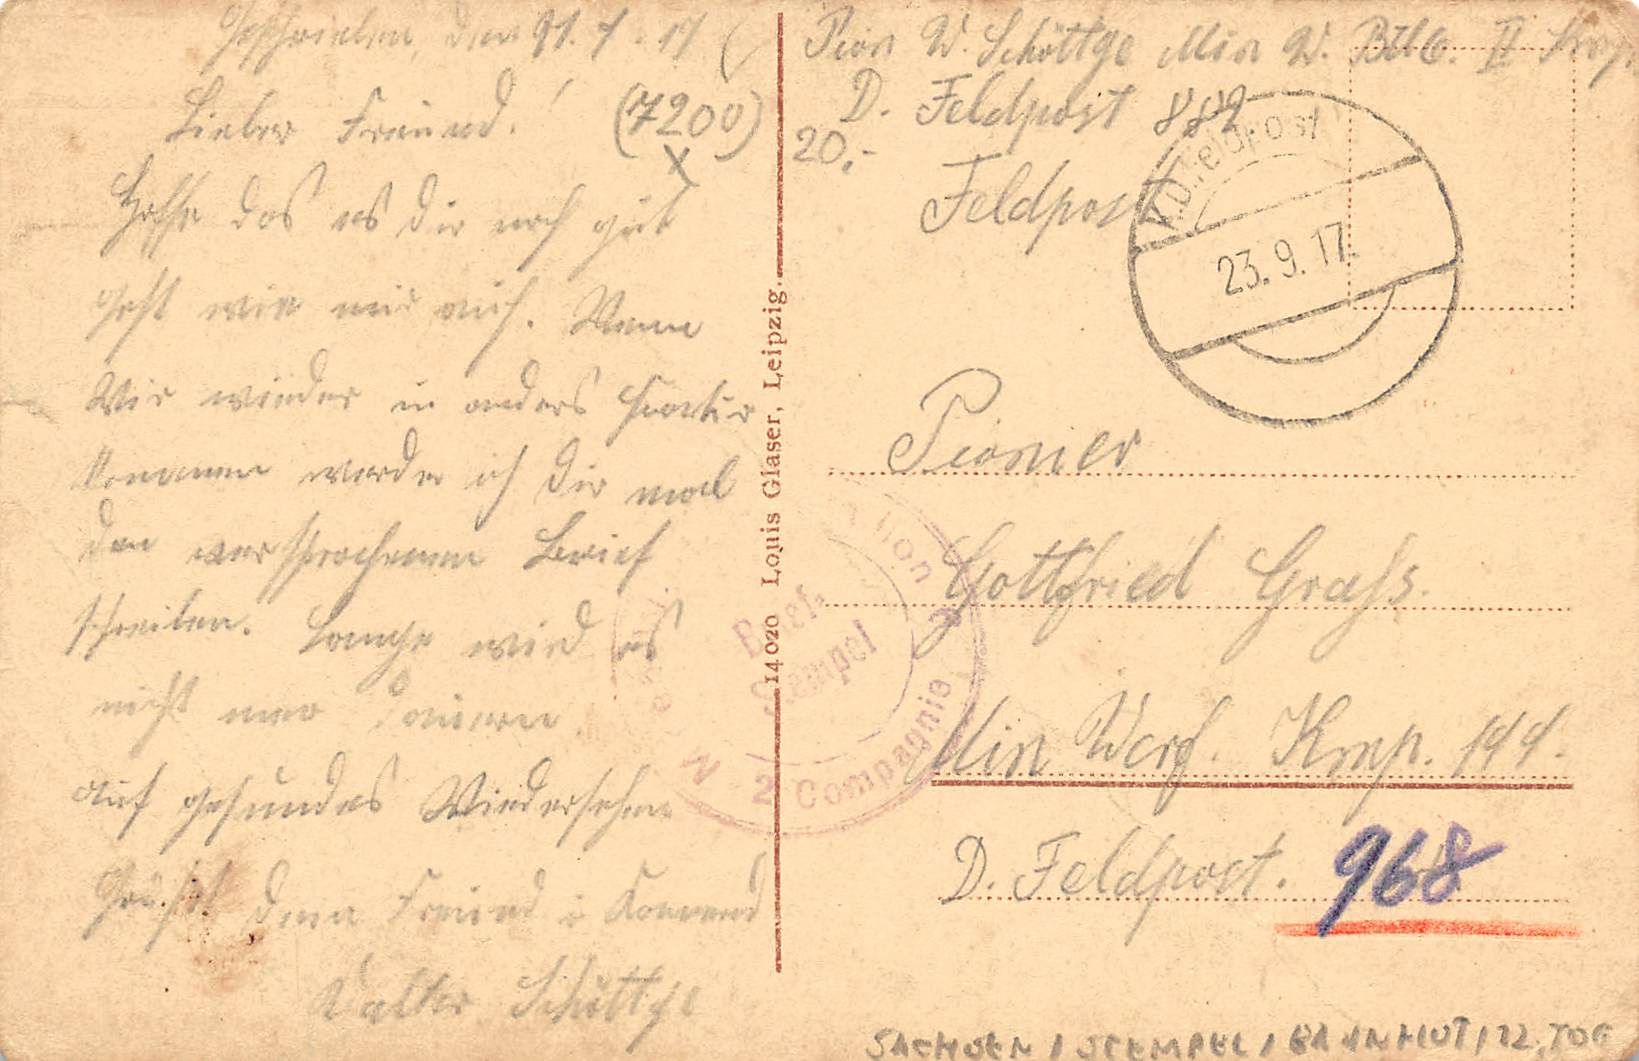 Geschrieben, den 21.9.17
Lieber Freund!
(7200)
X
Hoffe das es dir noch gut
geht wie mir auch. Wenn
Wir wieder in anders Quartir
kommen werde ich dir mal
den versprochenen Brief
schreiben. Lange wird es
nicht mer dauern
auf gesundes Wiedersehn
Grüßt dein Freund u Kamerad
Walter Schöttge
14020 Louis Glaser, Leipzig.
Pion W. Schöttge Min W. Btl. II Komp.
D. Feldpost 889
20,-
Feldpost
K.D. Feldpost
23.9.17.
Pionier
Gottfried Grafs.
Min Werf. Komp. 191.
D. Feldpost. 968
Brief-
Stempel
2 Compagnie
SACHSEN / STEMPEL / BAHNHOF / 22.